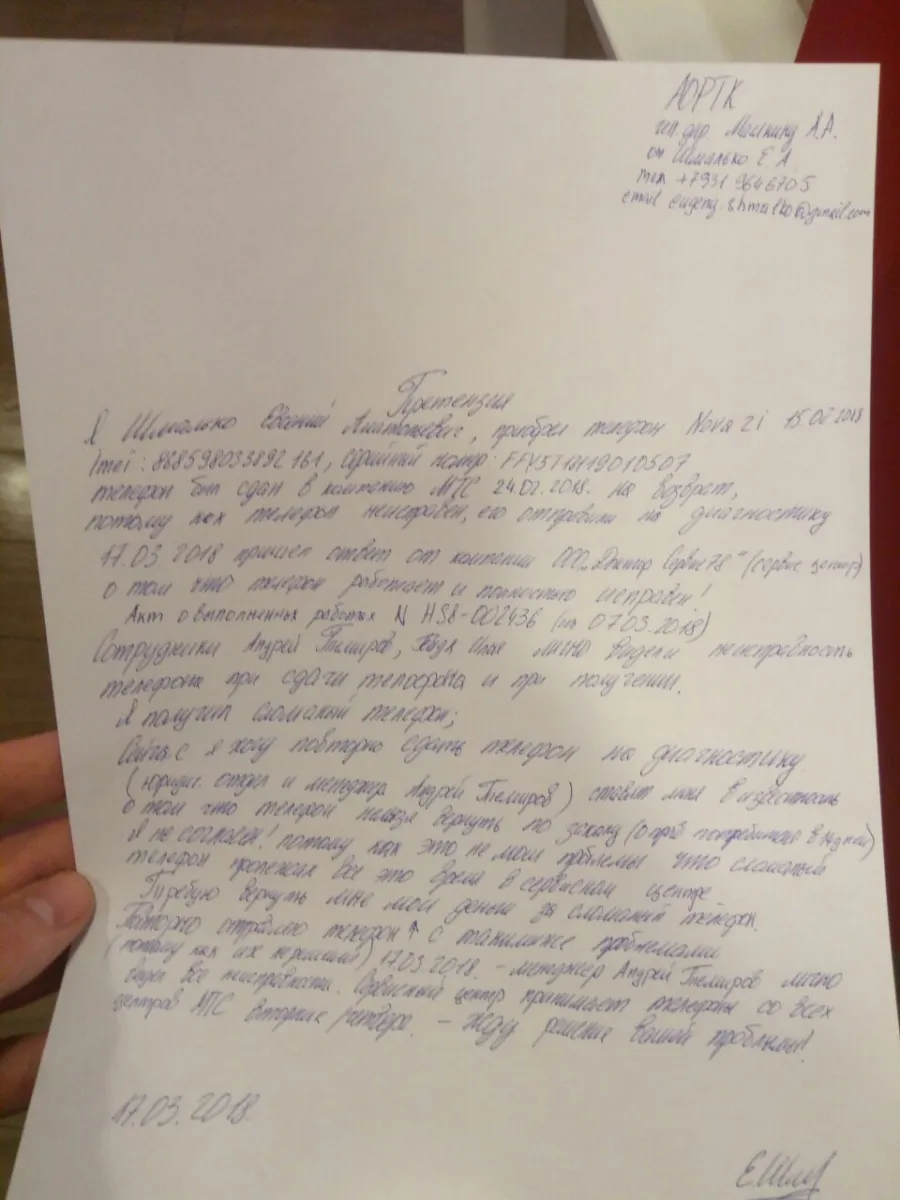 АО РТК
ген. дир. А.А.
от Шмалько Е. А
тел +7931 9646705
email evgeny.shmalko@gmail.com
Претензия
Я Шмалько Евгений Анатольевич, приобрел телефон Nova 2i 15.02.2018
Imei: 868598033892161, серийный номер:
телефон был сдан в компанию МТС 24.02.2018. на возврат,
потому как телефон неисправен, его отправили на диагностику
17.03.2018 пришел ответ от компании ООО „Доктор Сервис 78" (сервис центр)
о том что телефон работает и полностью исправен!
Акт о выполненных работах N HS8-002436 (от 07.03.2018)
Сотрудники Андрей Темиров, Илья лично видели неисправность
телефона при сдачи телефона и при получении.
Я получил сломаный телефон;
Сейчас я хочу повторно сдать телефон на диагностику
(юридич. отдел и менеджер Андрей Темиров) ставят меня в известность
о том что телефон нельзя вернуть по закону (о потребителей
Я не согласен! потому как это не мои проблемы что сломаный
телефон пролежал все это время в сервисном центре
Требую вернуть мне мои деньги за сломаный телефон.
Повторно отправляю телефон ↑ с такими же проблемами
(потому как их не решили) 17.03.2018. - менеджер Андрей Темиров лично
видел все неисправности. Сервисный центр принимает телефоны со всех
центров МТС вторник/четверг. - Жду решение вашей проблемы!
17.03.2018.